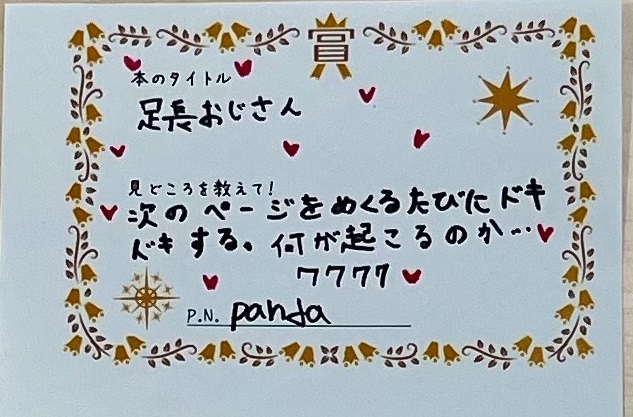 賞
本のタイトル
足長おじさん
見どころを教えて!
次のページをめくるたびにドキ
ドキする。何が起こるのか…
ワクワク
P.N. panda